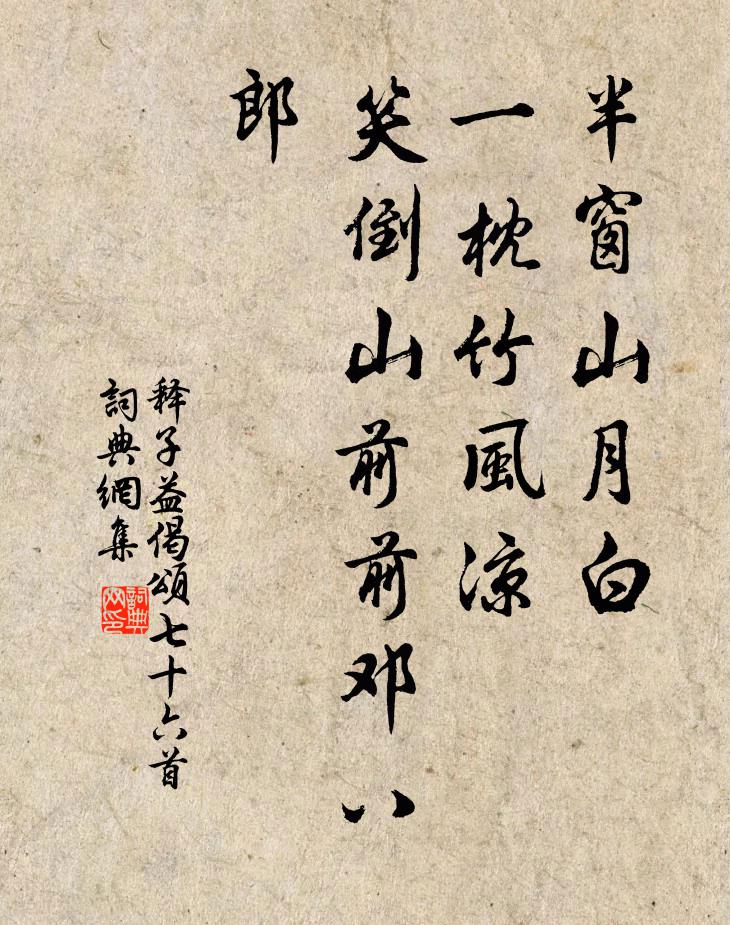 半窗山月白
一枕竹風涼
笑倒山前前邓八
郎
释子益偈頌七十六首
詞典網集
詞典網印